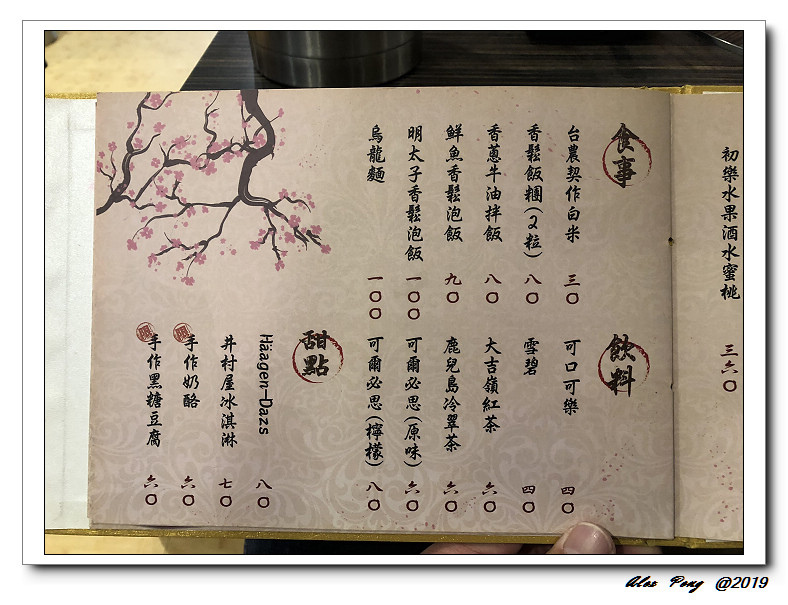 初樂水果酒水蜜桃 三六〇
食事
台農契作白米 三〇
香鬆飯糰(2粒) 八〇
香蔥牛油拌飯 八〇
鮮魚香鬆泡飯 九〇
明太子香鬆泡飯 一〇〇
烏龍麵 一〇〇
飲料
可口可樂 四〇
雪碧 四〇
大吉嶺紅茶 六〇
鹿兒島冷翠茶 六〇
可爾必思(原味) 六〇
可爾必思(檸檬) 八〇
甜點
Häagen-Dazs 八〇
井村屋冰淇淋 七〇
手作奶酪 六〇
手作黑糖豆腐 六〇
Alex Peng @2019